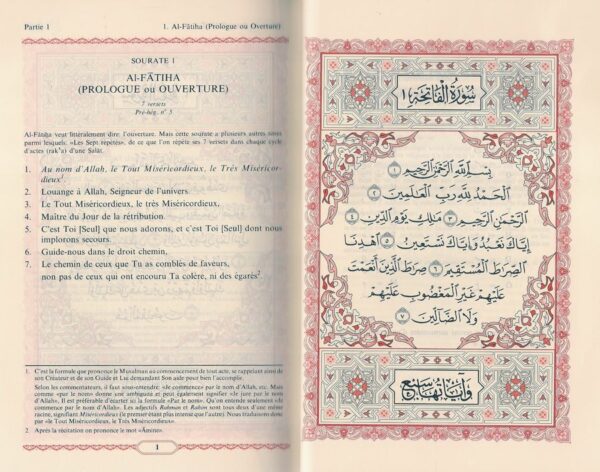 Partie 1
1. Al-Fātiha (Prologue ou Overture)
SOURATE 1
Al-FĀTIHA
(PROLOGUE ou OUVERTURE)
7 versets
Pré-hég. n° 5
Al-Fātiha veut littéralement dire: l'ouverture. Mais cette sourate a plusieurs autres noms
parmi lesquels: «Les Sept répétés», de ce que l'on répète ses 7 versets dans chaque cycle
d'actes (rak'a) d'une Ṣalāt.
1. Au nom d'Allah, le Tout Miséricordieux, le Très Miséricor-
dieux¹.
2. Louange à Allah, Seigneur de l'univers.
3. Le Tout Miséricordieux, le très Miséricordieux,
4. Maître du Jour de la rétribution.
5. C'est Toi [Seul] que nous adorons, et c'est Toi [Seul] dont nous
implorons secours.
6. Guide-nous dans le droit chemin,
7. Le chemin de ceux que Tu as comblés de faveurs,
non pas de ceux qui ont encouru Ta colère, ni des égarés².
1. C'est la formule que prononce le Musulman au commencement de tout acte, se rappelant ainsi de
son Créateur et de son Guide et Lui demandant Son aide pour bien l'accomplir.
Selon les commentateurs, il faut sous-entendre: «je commence» par le nom d'Allah, etc. Mais
comme «par le nom» donne une ambiguïté et peut également signifier «je jure par le nom
d'Allah». Il est préférable d'écarter ici la formule «Par le nom». Qu'on entende seulement «je
commence par le nom d'Allah». Les adjectifs Rahman et Rahim sont tous deux d'une même
racine, signifiant Miséricordieux (le premier étant plus intense que l'autre). Nous traduirons donc
par «le Tout Miséricordieux, le Très Miséricordieux».
2 Après la récitation on prononce le mot «Āmine».
1
سُورَةُ الْفَاتِحَةِ ١
بِسْمِ ٱللَّهِ ٱلرَّحْمَٰنِ ٱلرَّحِيمِ ١
ٱلْحَمْدُ لِلَّهِ رَبِّ ٱلْعَٰلَمِينَ ٢
ٱلرَّحْمَٰنِ ٱلرَّحِيمِ ٣ مَٰلِكِ يَوْمِ ٱلدِّينِ ٤
إِيَّاكَ نَعْبُدُ وَإِيَّاكَ نَسْتَعِينُ ٥ ٱهْدِنَا
ٱلصِّرَٰطَ ٱلْمُسْتَقِيمَ ٦ صِرَٰطَ ٱلَّذِينَ أَنْعَمْتَ
عَلَيْهِمْ غَيْرِ ٱلْمَغْضُوبِ عَلَيْهِمْ
وَلَا ٱلضَّآلِّينَ ٧
وَآيَاتُهَا سَبْعٌ